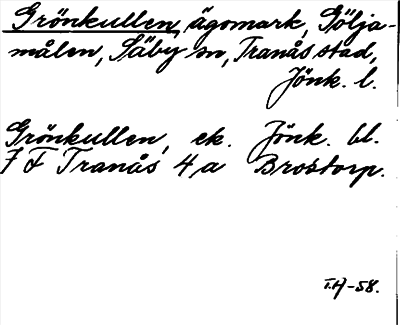 Grönkullen, ägomark, Sölja-
målen, Säby sn, Tranås stad,
Jönk. l.
Grönkullen, ek. Jönk. bl.
7 F Tranås 4,a Brostorp.
-58.